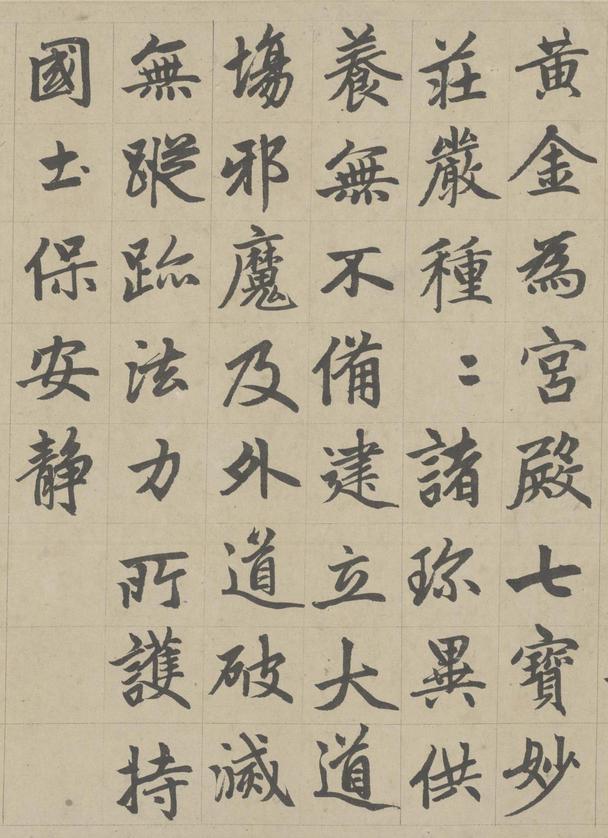 黄金為宮殿七寶妙
荘嚴種〻諸珎異供
養無不備建立大道
場邪魔及外道破滅
無蹤跡法力所護持
國土保安静